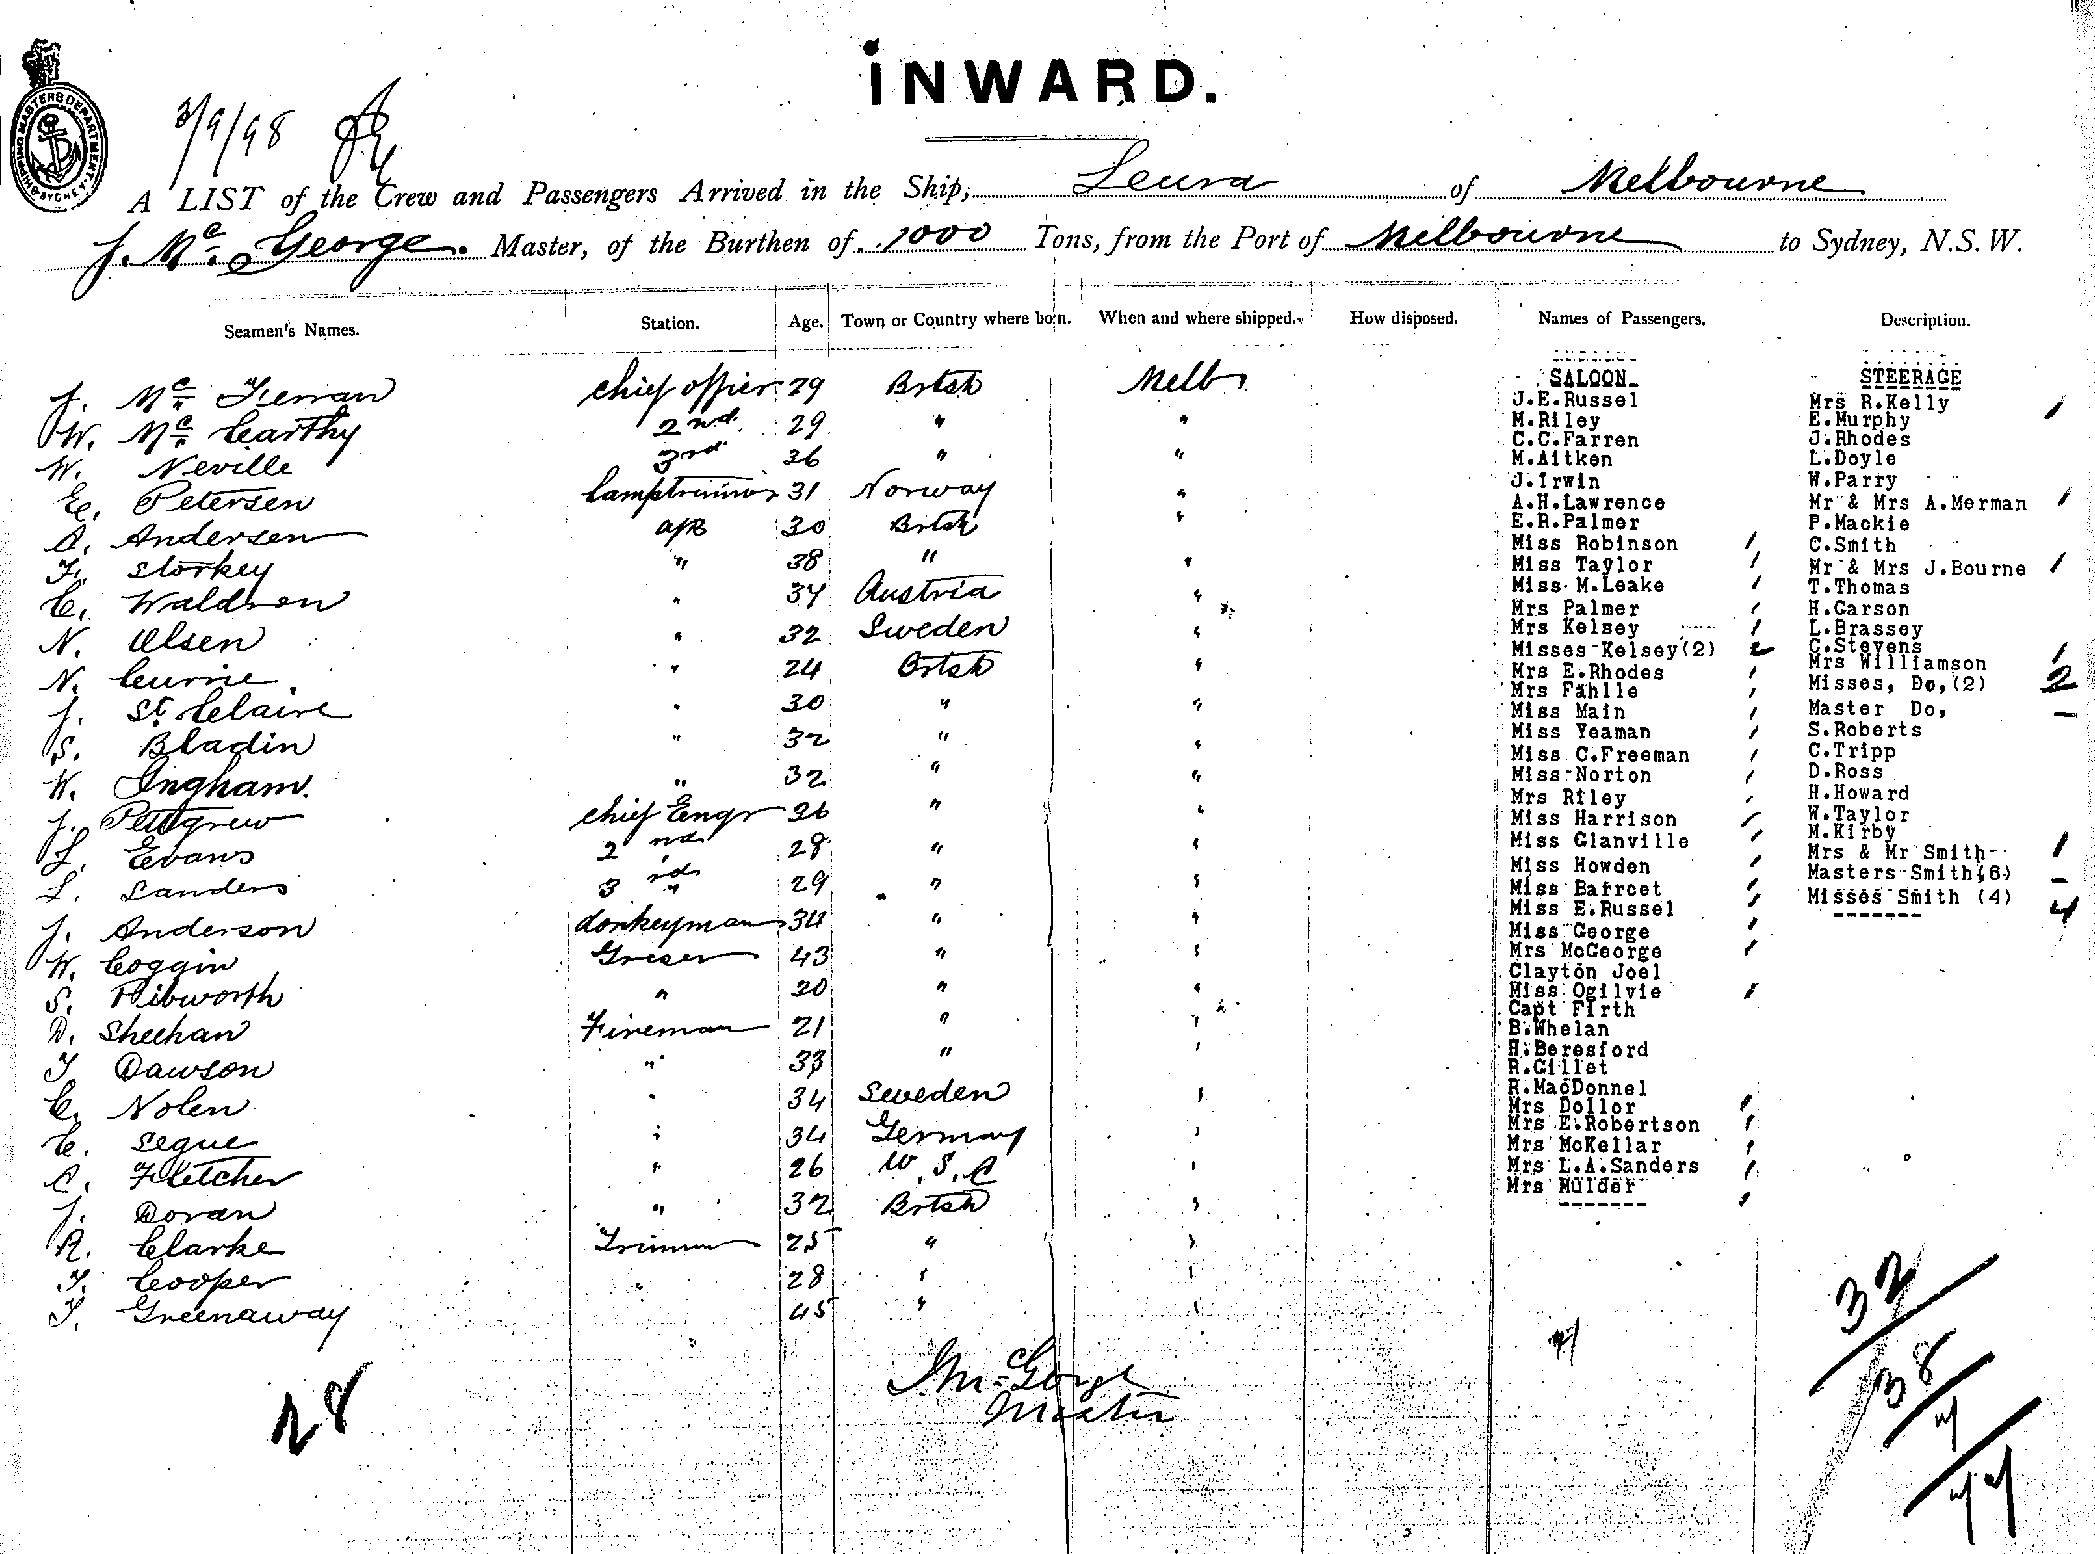 INWARD.
SHIPPING MASTERS DEPARTMENT SYDNEY
3/9/98
A LIST of the Crew and Passengers Arrived in the Ship, Leura of Melbourne
J. Mc. George. Master, of the Burthen of 1000 Tons, from the Port of Melbourne to Sydney, N.S.W.
Seamen's Names. Station. Age. Town or Country where born. When and where shipped. How disposed. Names of Passengers. Description.
J. Mc Tiernan chief offier 29 Brtsh Melb
W. Mc Carthy 2nd 29 " "
W. Neville 3rd 36 " "
E. Petersen lamptrimmer 31 Norway "
A. Andersen A/B 30 Brtsh "
F. Storkey " 38 " "
C. Waldron " 34 Austria "
N. Olsen " 32 Sweden "
N. Currie " 24 Brtsh "
J. St. Claire " 30 " "
S. Bladin " 32 " "
W. Ingham. " 32 " "
J. Pettigrew chief Engr 36 " "
L. Evans 2nd 28 " "
L. Sanders 3rd " 29 " "
J. Anderson donkeyman 34 " "
W. Coggin Greser 43 " "
S. Pibworth " 20 " "
D. Sheehan Fireman 21 " "
T Dawson " 33 " "
C. Nolen " 34 Sweden "
C. Segue " 34 Germany "
C. Fletcher " 26 W.S.A "
J. Doran " 32 Brtsh "
R. Clarke Trimmer 25 " "
T. Cooper " 28 " "
T. Greenaway 45 " "
28
Jn McGeorge
Master
SALOON
J.E.Russel
M.Riley
C.C.Farren
M.Aitken
J.Irwin
A.H.Lawrence
E.R.Palmer
Miss Robinson
Miss Taylor
Miss M.Leake
Mrs Palmer
Mrs Kelsey
Misses Kelsey(2) 2
Mrs E.Rhodes
Mrs Fahlle
Miss Main
Miss Yeaman
Miss C.Freeman
Miss Norton
Mrs Riley
Miss Harrison
Miss Glanville
Miss Howden
Miss Barrcet
Miss E.Russel
Miss George
Mrs McGeorge
Clayton Joel
Miss Ogilvie
Capt Firth
B.Whelan
H.Beresford
R.Gillet
R.MacDonnel
Mrs Dollor
Mrs E.Robertson
Mrs McKellar
Mrs L.A.Sanders
Mrs Mulder
STEERAGE
Mrs R.Kelly
E.Murphy
J.Rhodes
L.Doyle
W.Parry
Mr & Mrs A.Merman
P.Mackie
C.Smith
Mr & Mrs J.Bourne
T.Thomas
H.Carson
L.Brassey
C.Stevens
Mrs Williamson
Misses, Do,(2) 2
Master Do,
S.Roberts
C.Tripp
D.Ross
H.Howard
W.Taylor
M.Kirby
Mrs & Mr Smith
Masters Smith(6)
Misses Smith (4) 4
32
38